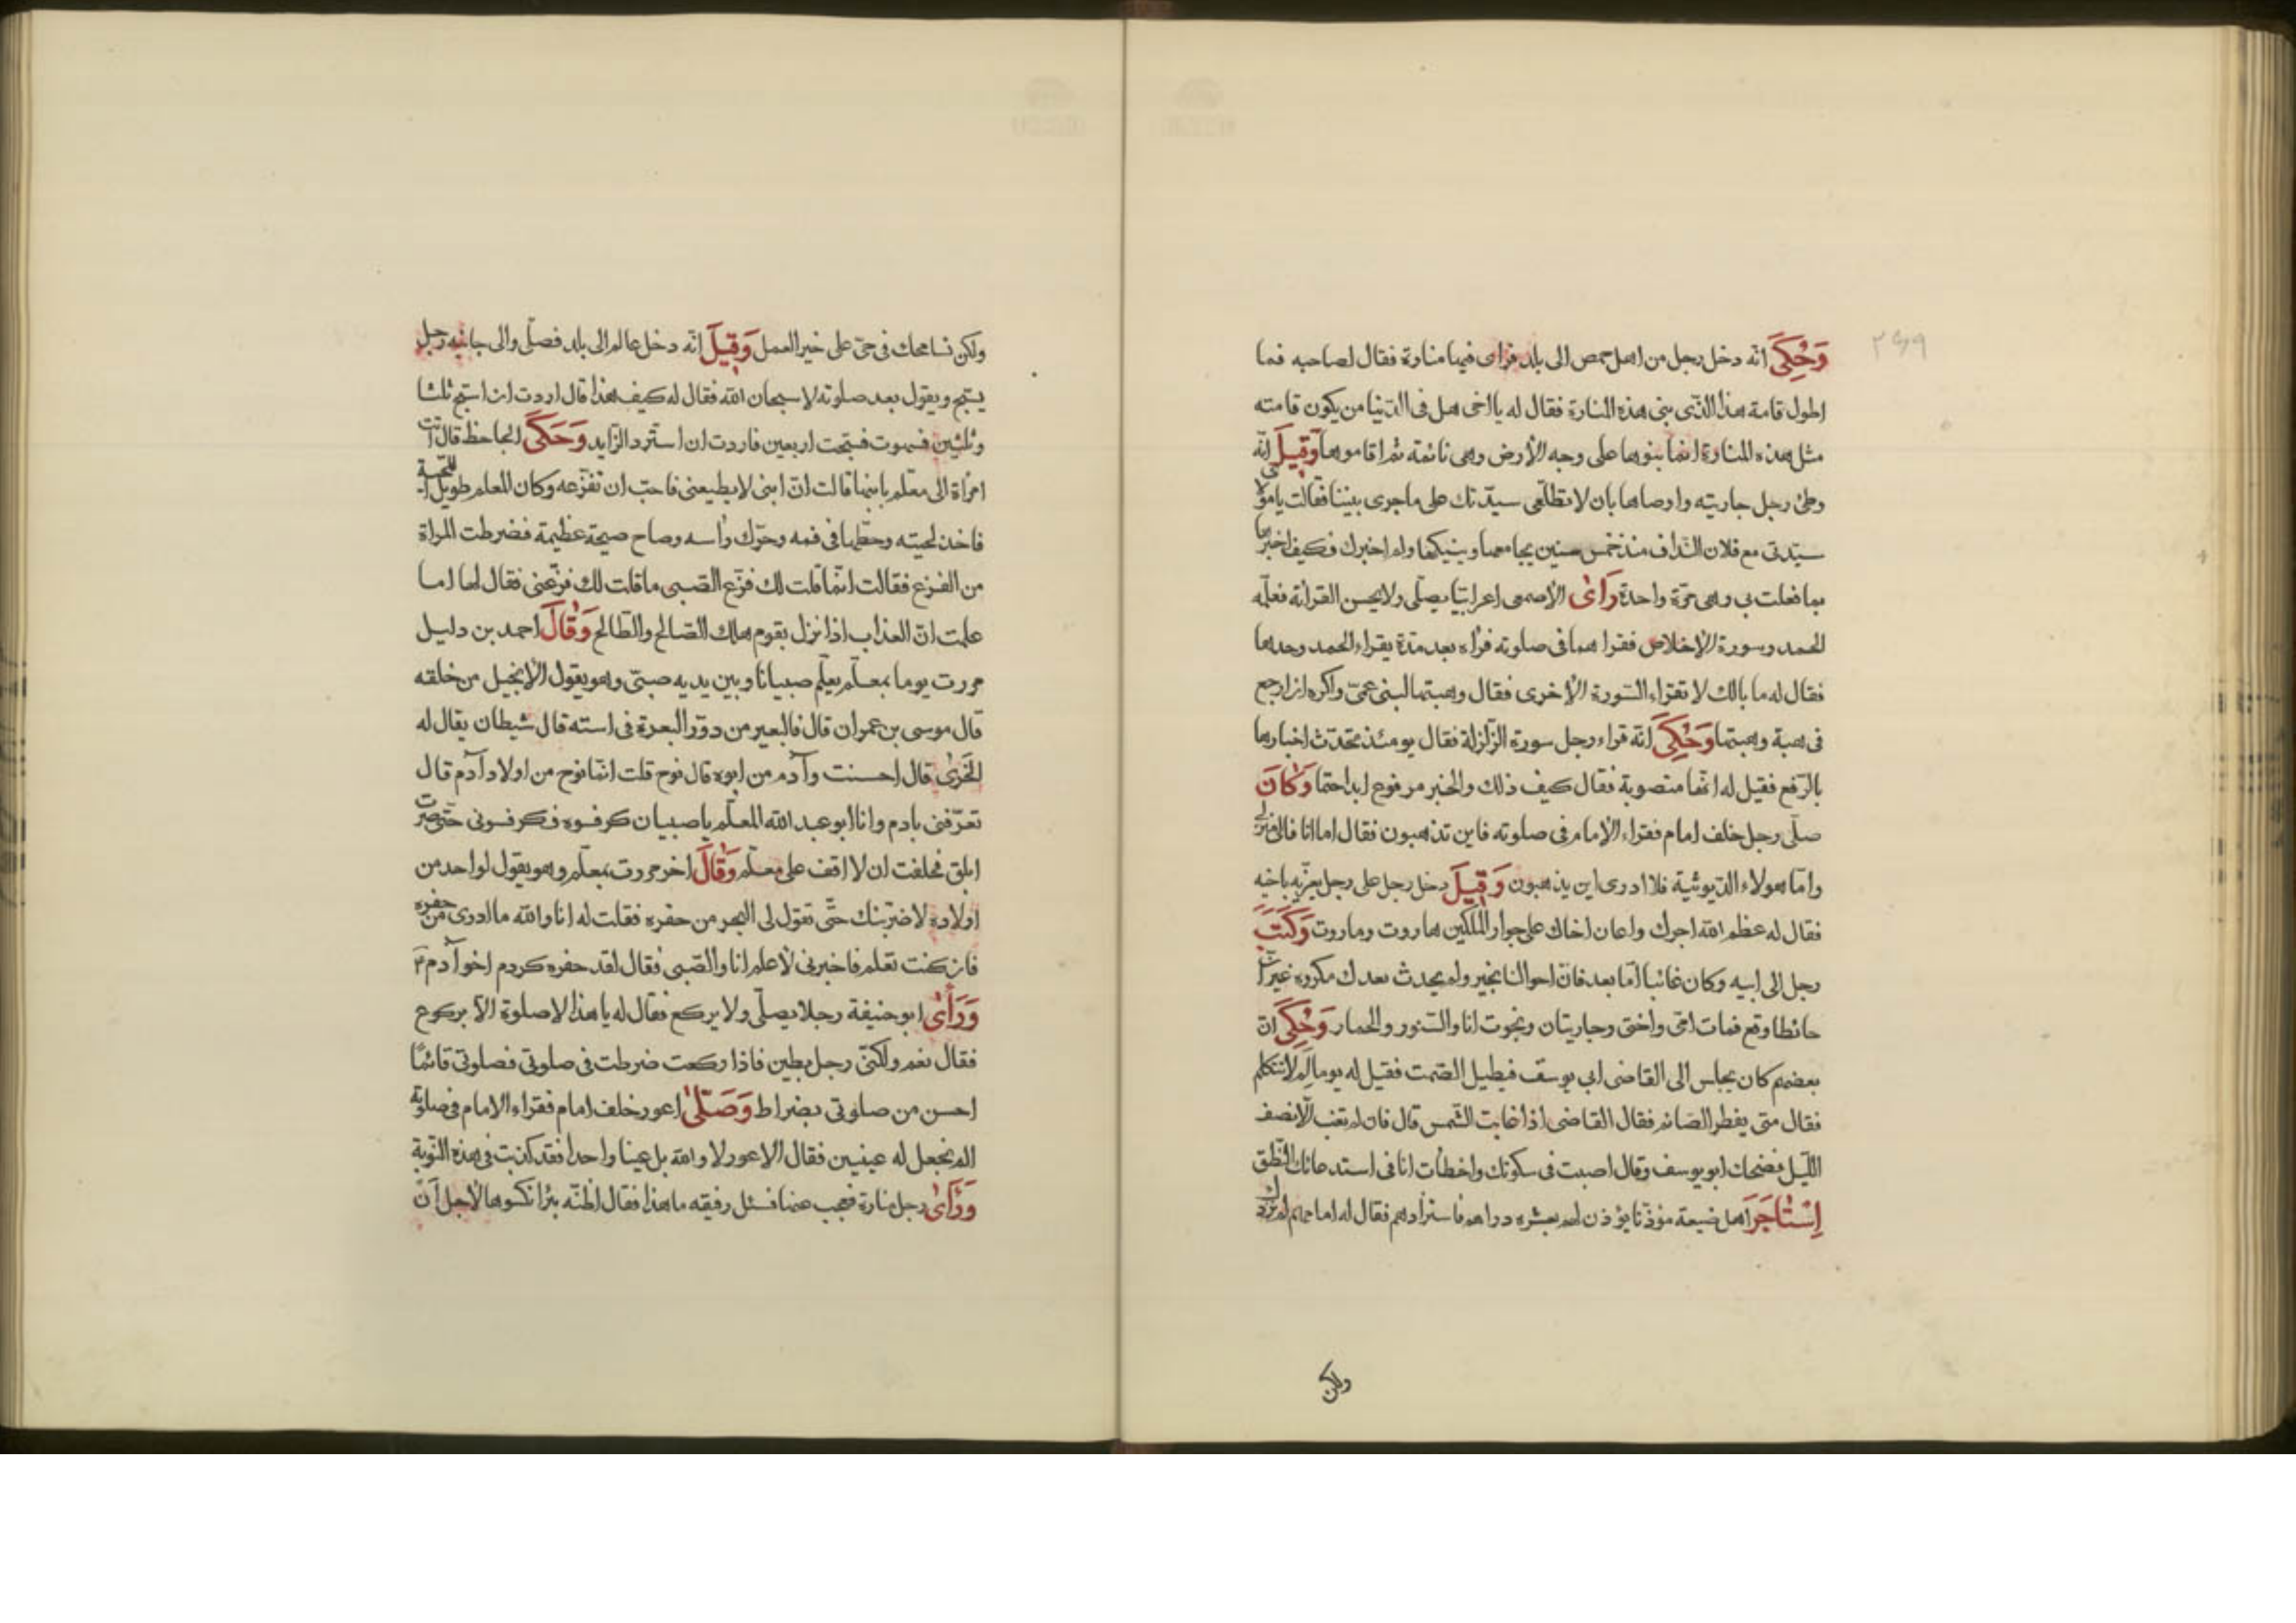 وَحُكِيَ انّه دخل رجل من اهل حمص الى بلد فراى فيها منارة فقال لصاحبه فما
اطول قامة هذا الّذى بنى هذه المنارة فقال له يا اخى هل فى الدّنيا من يكون قامته
مثل هذه المنارة انما بنوها على وجه الأرض وهى نائمة ثم اقاموها وَقِيلَ انّه
وطئ رجل جاريته واوصاها بان لا تطلعى سيّدتك على ما جرى بيننا فقالت يا مولاى
سيّدتى مع فلان النداف منذ خمس سنين يجامعها وينيكها ولم اخبرك فكيف اخبرها
بما فعلت بى وهى مرّة واحدة رَاىٰ الأصمعى اعرابيّا يصلّى ولا يحسن القرائة فعلّمه
الحمد وسورة الإخلاص فقراهما فى صلوته فرأه بعد مدّة يقراء الحمد وحدها
فقال له ما بالك لا تقراء السّورة الأخرى فقال وهبتها لبنى عمىّ واكره ان ارجع
فى هبة وهبتها وَحُكِيَ انّه قراء رجل سورة الزّلزلة فقال يومئذ تحدّث اخبارها
بالرّفع فقيل له انّها منصوبة فقال كيف ذلك والخبر مرفوع ابدا حتما وَكَانَ
صلّى رجل خلف امام فقراء الإمام فى صلوته فاين تذهبون فقال اما انا فالى منزلى
وامّا هولاء الدّيوثية فلا ادرى اين يذهبون وَقِيلَ دخل رجل على رجل يعزّيه باخيه
فقال له عظم الله اجرك واعان اخاك على جوار الملكين هاروت وماروت وَكَتَبَ
رجل الى ابيه وكان غائبا امّا بعد فانّ احوالنا بخير ولم يحدث بعدك مكروه غير انّ
حائطا وقع فمات امّى واختى وجاريتان ونجوت انا والسنّور والحمار وَحُكِيَ انّ
بعضهم كان يجلس الى القاضى ابى يوسف فيطيل الصّمت فقيل له يوما لِمَ لا تتكلم
فقال متى يفطر الصّائم فقال القاضى اذا غابت الشّمس قال فان لم تغب الّا نصف
اللّيل فضحك ابو يوسف وقال اصبت فى سكوتك واخطأت انا فى استدعائك النّطق
اِسْتَاجَرَ اهل ضيعة مؤذّنا يؤذن لهم بعشرة دراهم فاستزادهم فقال له امامهم لم نزدك
ولكن
ولكن نسامحك فى حىّ على خير العمل وَقِيلَ انّه دخل عالم الى بلد فصلّى والى جانبه رجل
يسبّح ويقول بعد صلوته لا سبحان الله فقال له كيف هذا قال اردت ان اسبّح ثلثا
وثلثين فسهوت فسبّحت اربعين فاردت ان استردّ الزّايد وَحَكَى الجاحظ قال اتت
امرأة الى معلّم بابنها قالت انّ ابنى لا يطيعنى فاحبّ ان تفزّعه وكان المعلم طويل اللّحية
فاخذ لحيته وحطّها فى فمه وحرّك رأسه وصاح صيحة عظيمة فضرطت المراة
من الفزع فقالت انّما قلت لك فزّع الصّبى ما قلت لك فزّعنى فقال لها اما
علمت انّ العذاب اذا نزل بقوم هلك الصّالح والطّالح وَقَالَ احمد بن دليل
مررت يوما بمعلّم يعلّم صبيانا وبين يديه صبىّ وهو يقول الإنجيل من خلقه
قال موسى بن عمران قال فالبعير من دوّر البعرة فى استه قال شيطان يقال له
الخَرَىٰ قال احسنت وآدم من ابوه قال نوح قلت انّما نوح من اولاد آدم قال
تعرّفنى بادم وانا ابو عبد الله المعلّم يا صبيان كرفسوه فكرفسونى حتّى صرت
ابلق فحلفت ان لا اقف على معلّم وَقَالَ اخر مررت بمعلّم وهو يقول لواحد من
اولاده لاضربنّك حتّى تقول لى البحر من حفره فقلت له انا والله ما ادرى من حفره
فان كنت تعلم فاخبرنى لأعلم انا والصّبى فقال لقد حفره كردم اخو آدم ع
وَرَأىٰ ابو حنيفة رجلا يصلّى ولا يركع فقال له يا هذا لا صلوة الّا بركوع
فقال نعم ولكنّى رجل بطين فاذا ركعت ضرطت فى صلوتى فصلوتى قائمًا
احسن من صلوتى بضراط وَصَلّىٰ اعور خلف امام فقراء الامام فى صلوته
الم نجعل له عينين فقال الاعور لا والله بل عينا واحدا فقد كذبت فى هذه النّوبة
وَرَأىٰ رجل منارة فعجب عنها فسئل رفيقه ما هذا فقال اظنّه بئرا نكسوها لأجل أن